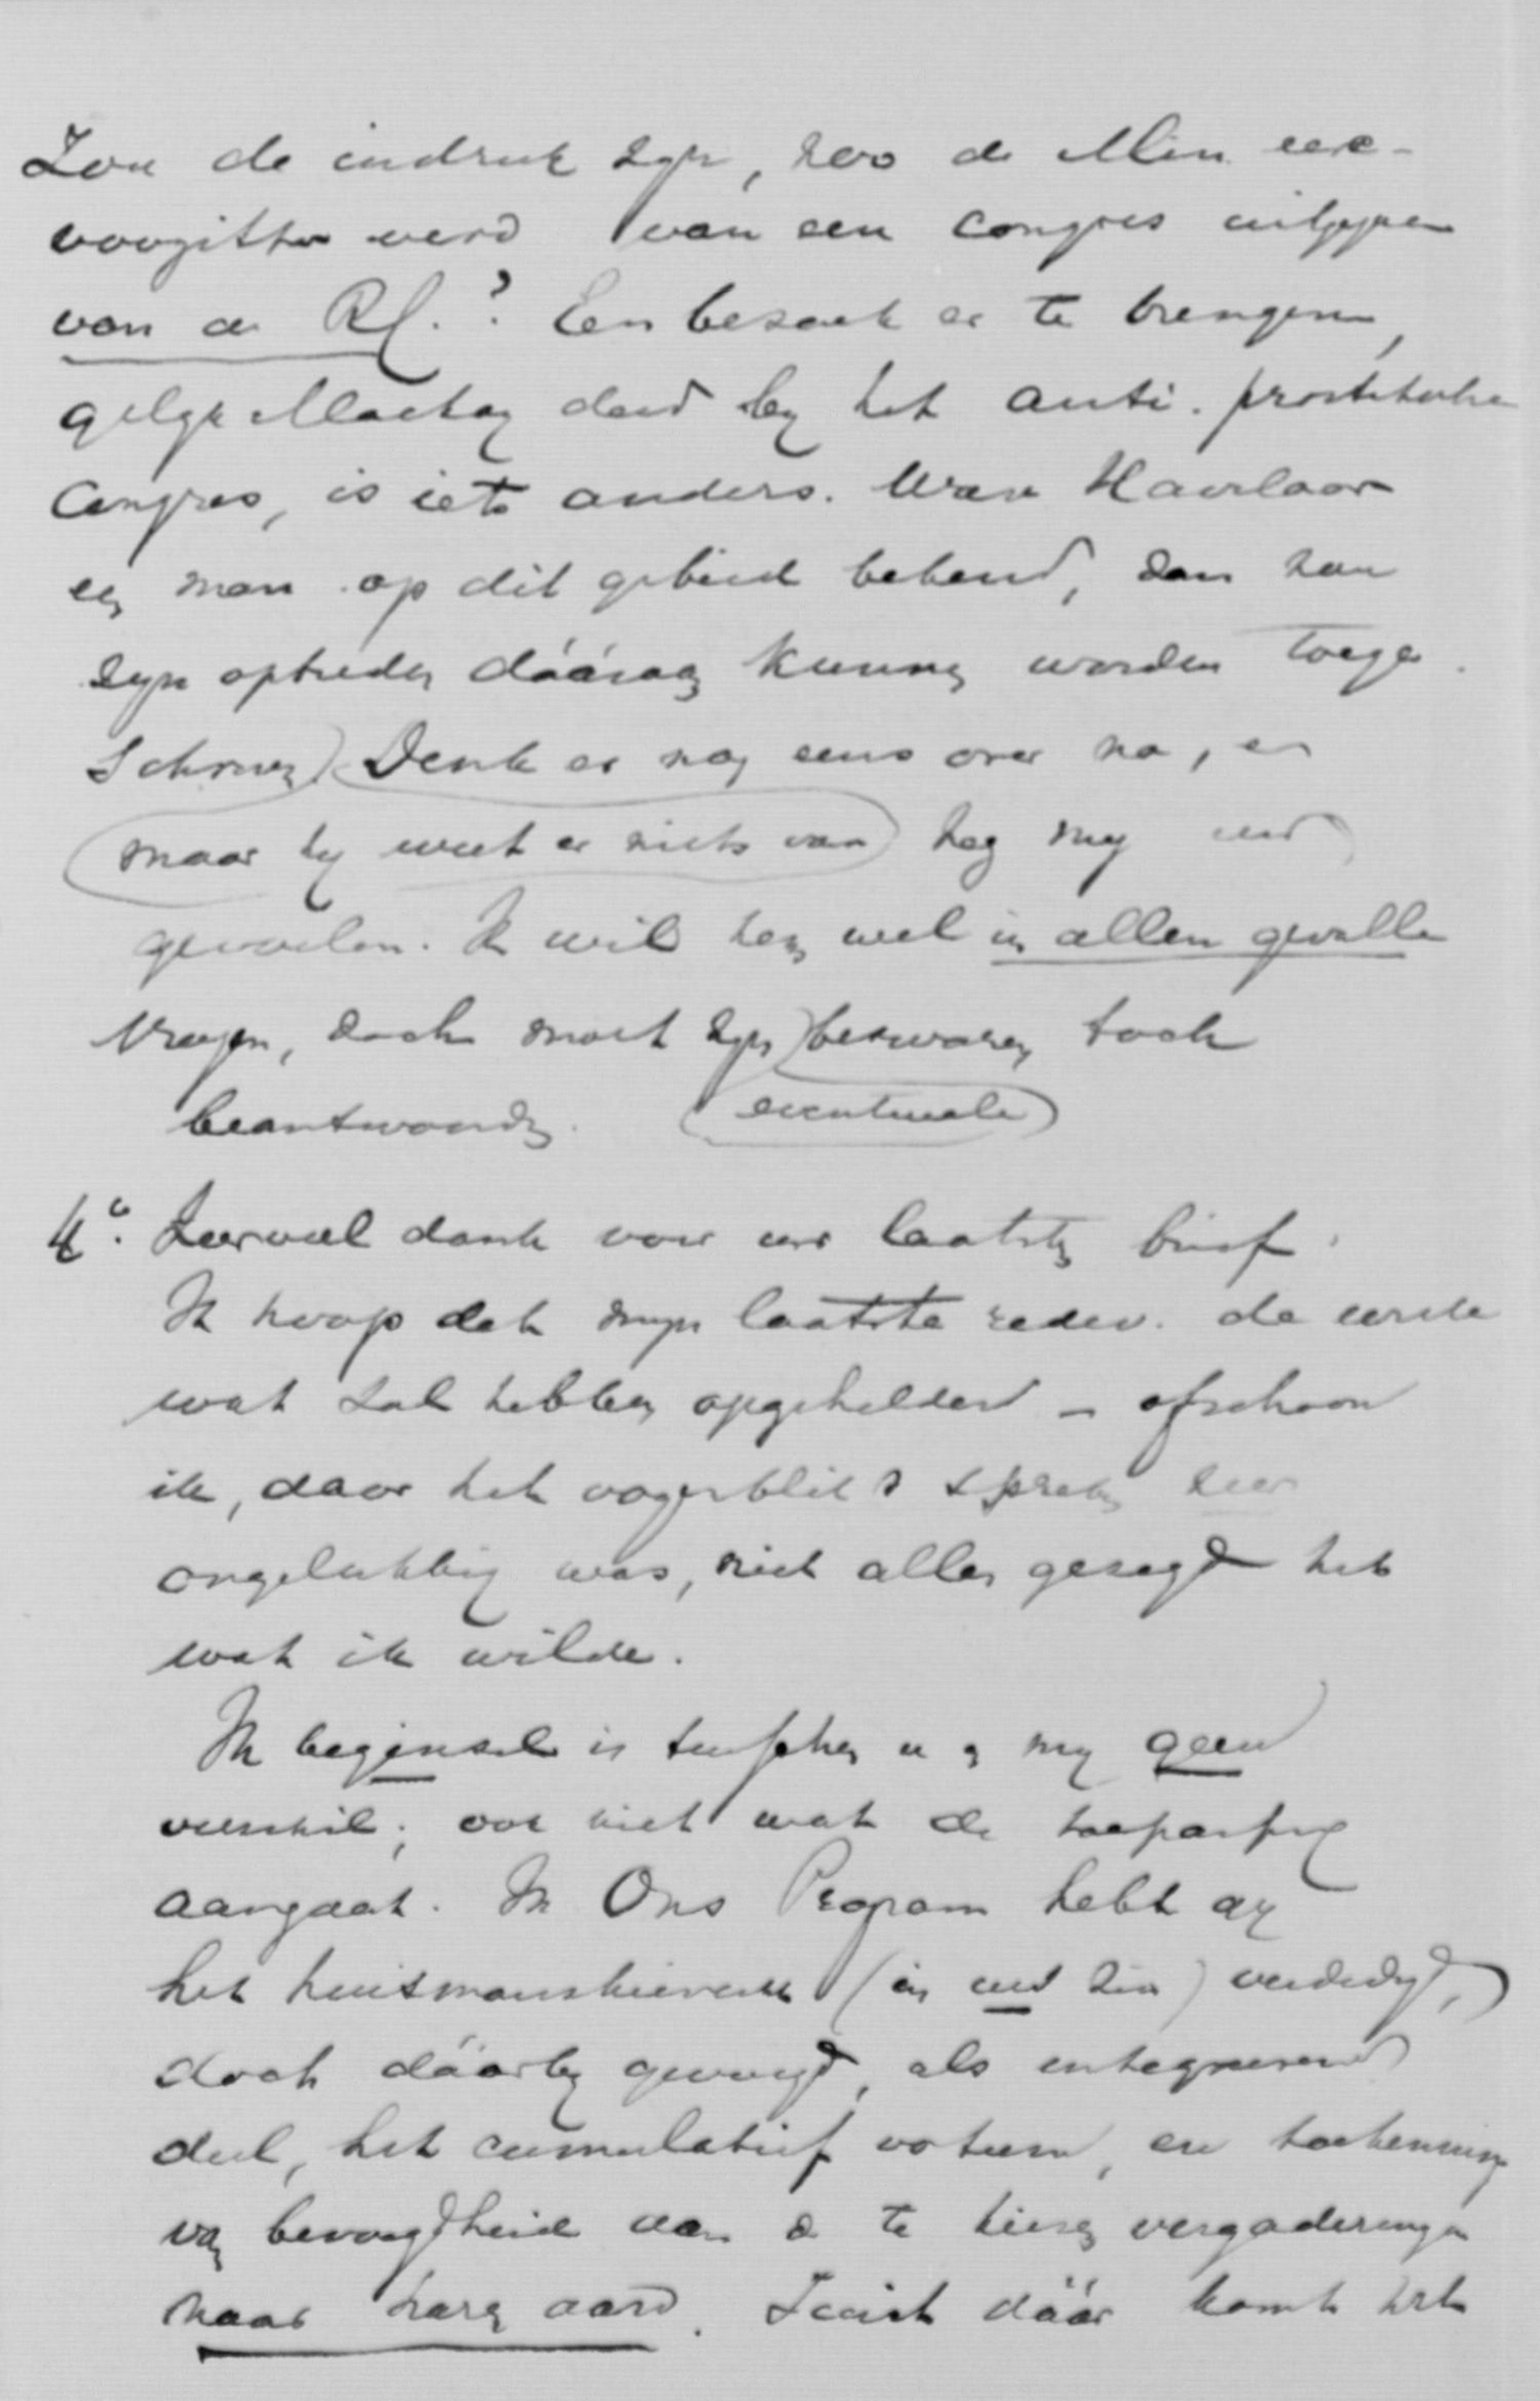 Zou de indruk zijn, zoo de Min. eere-
voorzitter werd van een congres uitgegaan
van de Rl.? Een bezoek er te brengen,
gelijk Mackay deed bij het anti-prostitutie
Congres, is iets anders. Ware Havelaar
een man op dit gebied bekend, dan zou
zijn optreden dááraan kunnen worden toege-
schreven. Denk er nog eens over na, en
(maar hij weet er niets van) zeg mij uw
gevoelen. Ik wil hem wel in allen gevalle
vragen, doch moet zijn bezwaren toch
beantwoorden. (eventueele)
4°. Zeer veel dank voor uw laatsten brief.
Ik hoop dat mijn laatste redev. de eerste
wat zal hebben opgehelderd – ofschoon
ik, daar het oogenblik v spreken zeer
ongelukkig was, niet alles gezegd heb
wat ik wilde.
In beginsel is tusschen u en mij geen
verschil; ook niet wat de toepassing
aangaat. In Ons Program hebt gij
het huismanskiesrecht (in uw zin) verdedigd,
doch dáárbij gevoegd, als integreerend
deel, het cumulatief votum, en toekenning
van bevoegdheid aan de te kiezen vergaderingen
naar haren aard. Juist dáár komt het